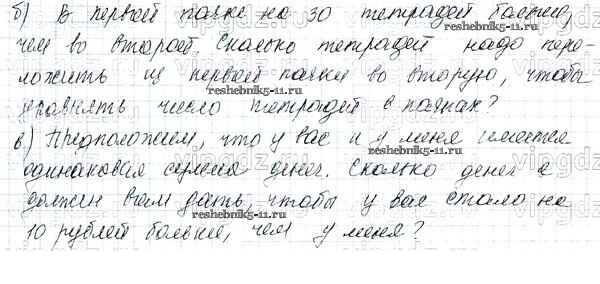 б) В первой пачке на 30 тетрадей больше,
чем во второй. Сколько тетрадей надо пере-
reshebnik5-11.ru
ложить из первой пачки во вторую, чтобы
reshebnik5-11.ru
уровнять число тетрадей в пачках?
в) Предположим, что у вас и у меня имеется
reshebnik5-11.ru
одинаковая сумма денег. Сколько денег я
должен вам дать, чтобы у вас стало на
reshebnik5-11.ru
10 рублей больше, чем у меня?